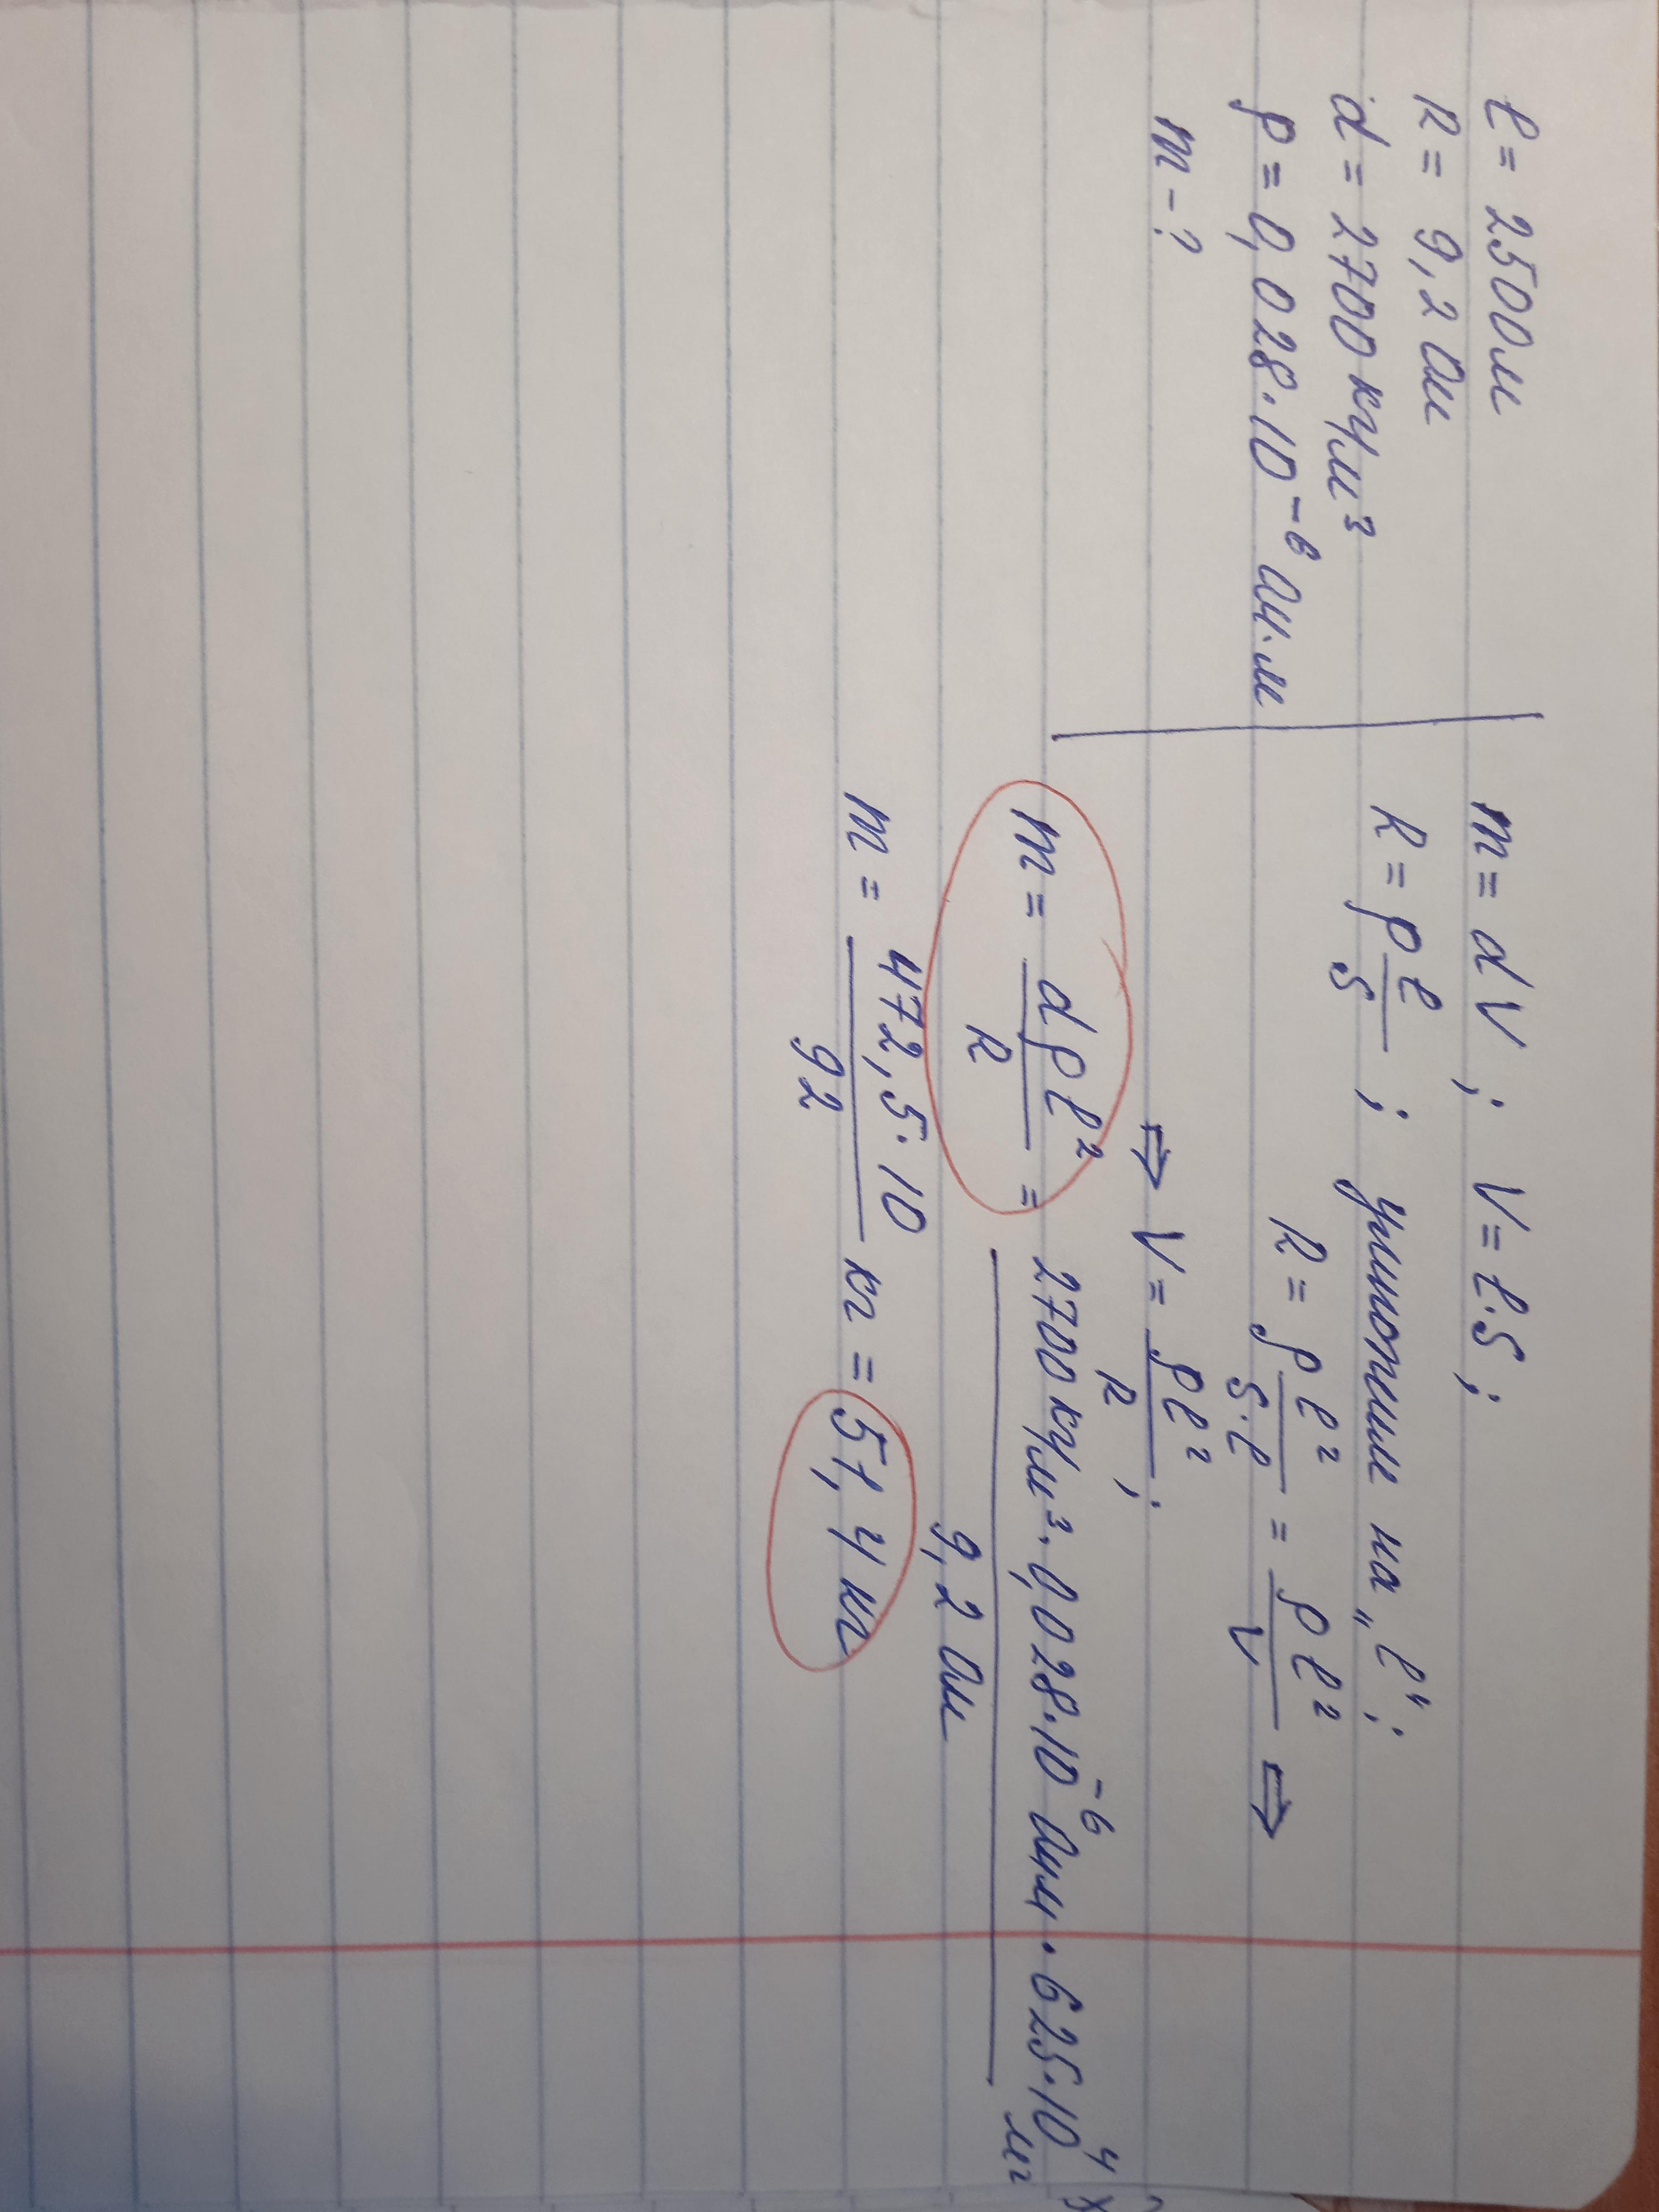 ℓ = 2500м
R = 9,2 Ом
d = 2700 кг/м³
ρ = 0,028·10⁻⁶ Ом·м
m - ?
m = dV ; V = ℓ·S ;
R = ρ ℓ/S ; умножим на „ℓ“ ;
R = ρ ℓ²/(S·ℓ) = ρℓ²/V ⇒
⇒ V = ρℓ²/R ;
m = dρℓ²/R = 2700 кг/м³ · 0,028·10⁻⁶ Ом·м · 625·10⁴ м² / 9,2 Ом
m = 472,5·10/92 кг = 51,4 кг